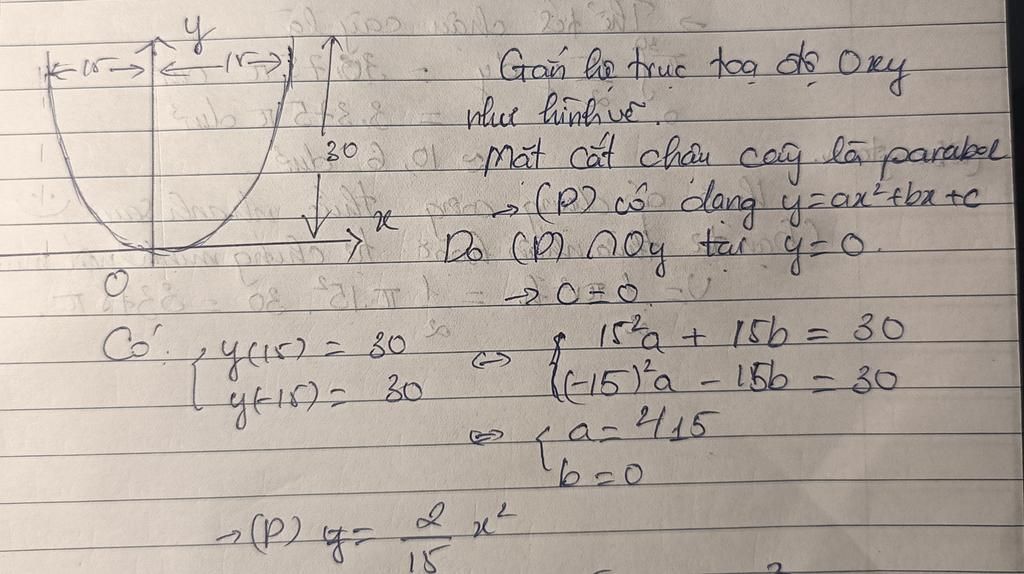 y
←15→ ←15→
30
x
O
Gắn hệ trục toạ độ Oxy
như hình vẽ.
Mặt cắt chậu cây là parabol
→ (P) có dạng y=ax²+bx+c
Do (P) ∩ Oy tại y=0.
→ c=0
Có: { y(15) = 30 ⇔ { 15²a + 15b = 30
{ y(-15) = 30 { (-15)²a - 15b = 30
⇔ { a = 2/15
{ b = 0
→ (P) y = 2/15 x²